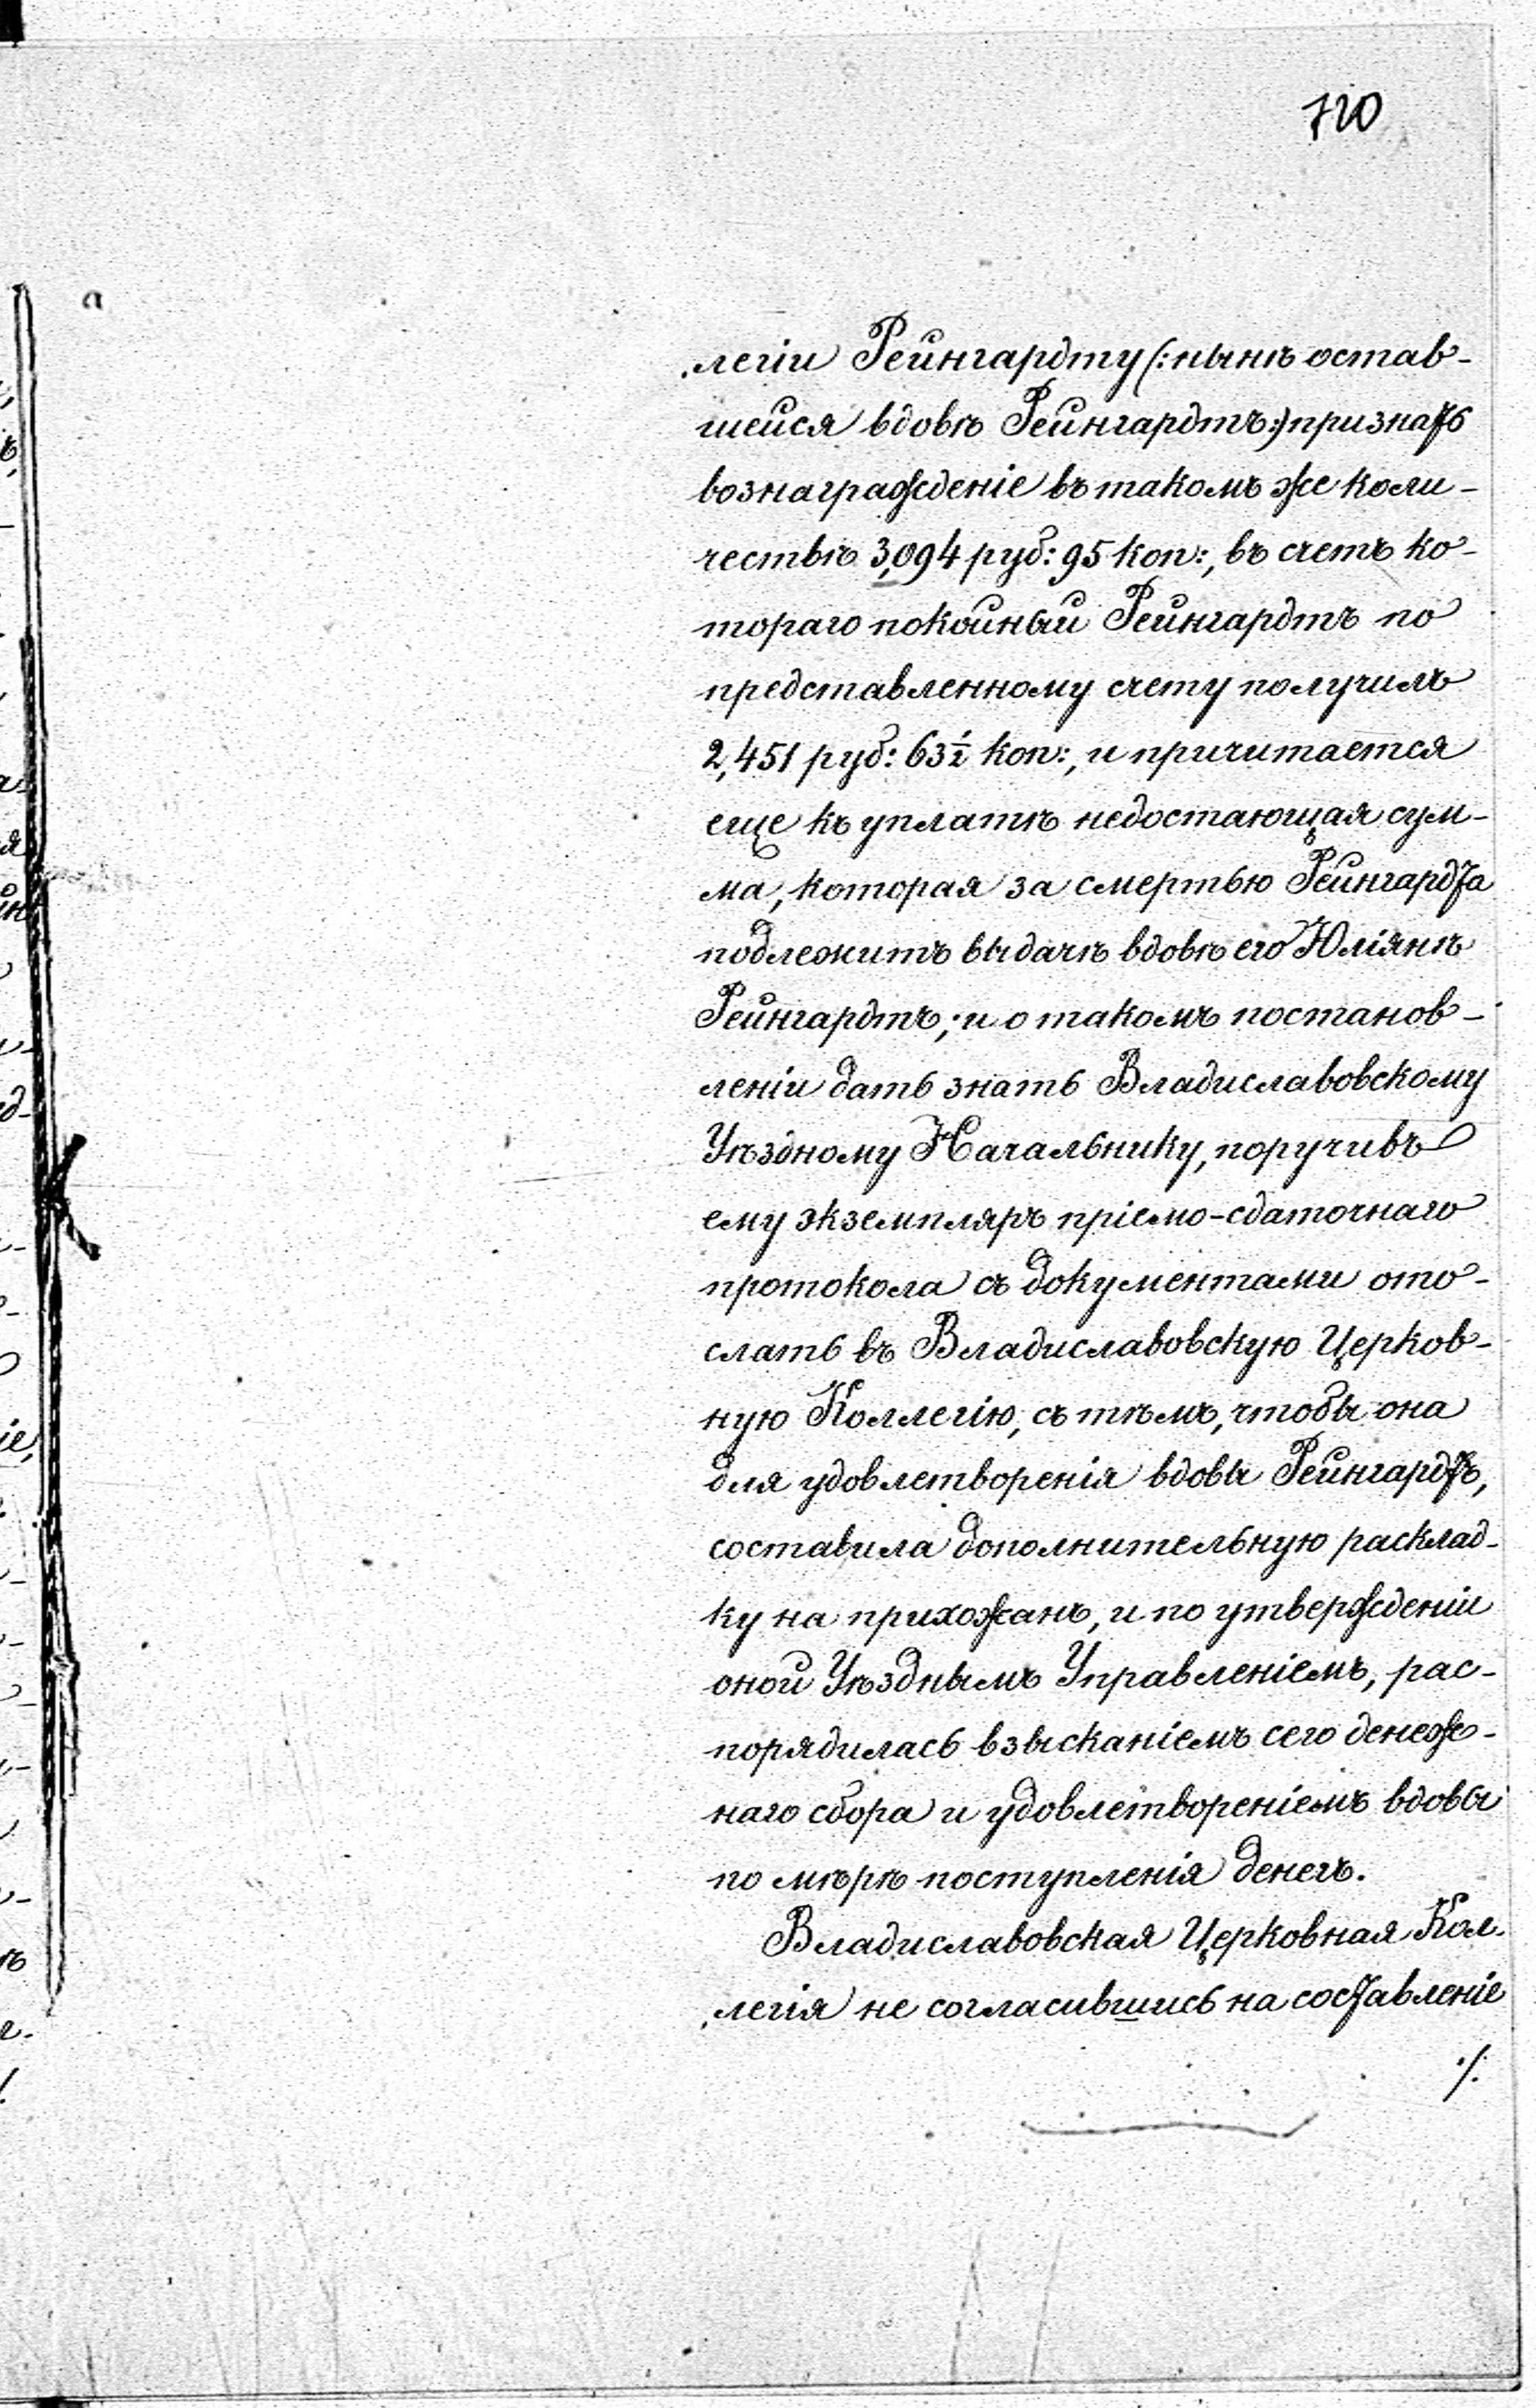 720
легіи Рейнгардту (: нынѣ остав-
шейся вдовѣ Рейнгардтъ:) признать
вознагражденіе въ такомъ же коли-
чествѣ 3,094 руб: 95 коп:, въ счетъ ко-
тораго покойный Рейнгардтъ по
представленному счету получилъ
2,451 руб: 63½ коп:, и причитается
еще къ уплатѣ недостающая сум-
ма, которая за смертью Рейнгардта
подлежитъ выдачѣ вдовѣ его Юліянѣ
Рейнгардтъ; и о такомъ постанов-
леніи дать знать Владиславовскому
Уѣздному Начальнику, поручивъ
ему экземпляръ пріемо-сдаточнаго
протокола съ документами ото-
слать въ Владиславовскую Церков-
ную Коллегію, съ тѣмъ, чтобы она
для удовлетворенія вдовы Рейнгардтъ,
составила дополнительную расклад-
ку на прихожанъ, и по утвержденіи
оной Уѣзднымъ Управленіемъ, рас-
порядилась взысканіемъ сего денеж-
наго сбора и удовлетвореніемъ вдовы
по мѣрѣ поступленія денегъ.
Владиславовская Церковная Кол-
легія не согласившись на составленіе
./.